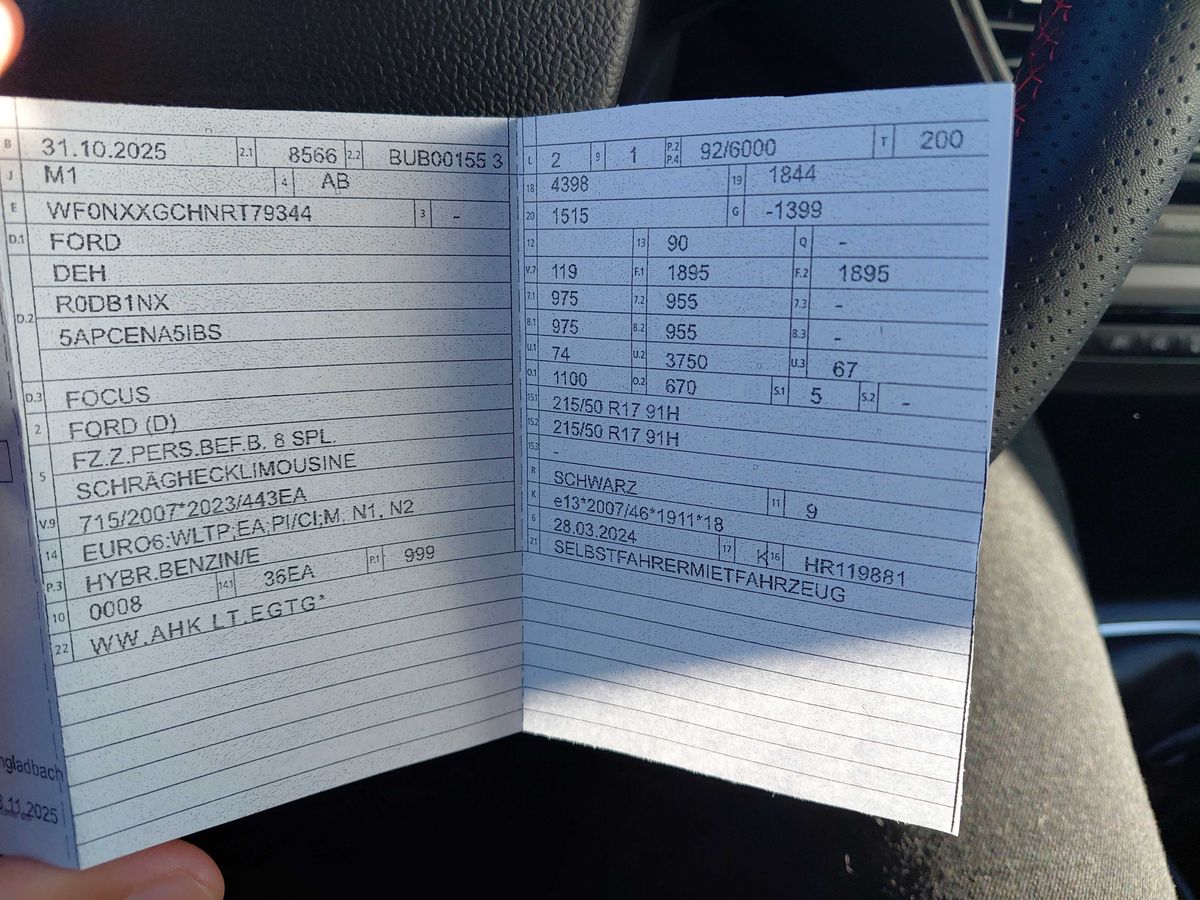 B 31.10.2025 2.1 8566 2.2 BUB00155 3
J M1 4 AB
E WF0NXXGCHNRT79344 3 -
D.1 FORD
D.2 DEH
R0DB1NX
5APCENA5IBS
D.3 FOCUS
2 FORD (D)
5 FZ.Z.PERS.BEF.B. 8 SPL.
SCHRÄGHECKLIMOUSINE
V.9 715/2007*2023/443EA
14 EURO6;WLTP;EA;PI/CI;M, N1, N2
P.3 HYBR.BENZIN/E
10 0008 14.1 36EA P.1 999
22 WW.AHK LT.EGTG*
ngladbach
.11.2025
L 2 9 1 P.2 P.4 92/6000 T 200
18 4398 19 1844
20 1515 G -1399
12 13 90 Q -
V.7 119 F.1 1895 F.2 1895
7.1 975 7.2 955 7.3 -
8.1 975 8.2 955 8.3 -
U.1 74 U.2 3750 U.3 67
O.1 1100 O.2 670 S.1 5 S.2 -
15.1 215/50 R17 91H
15.2 215/50 R17 91H
15.3 -
R SCHWARZ 11 9
K e13*2007/46*1911*18
6 28.03.2024 17 K 16 HR119881
21 SELBSTFAHRERMIETFAHRZEUG